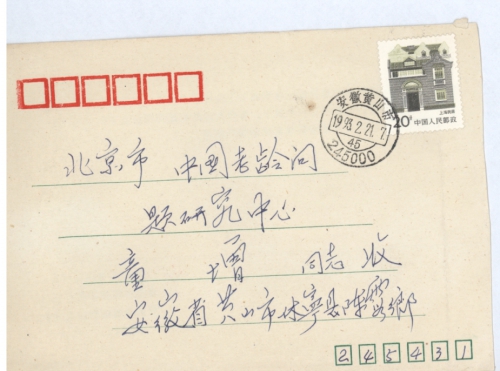 上海民居
20分 中国人民邮政
安徽黄山
1993.2.21.7
45
245000
北京市 中国老龄问
题研究中心
童 增 同志 收
安徽省黄山市休宁县陈霞鄉
245431